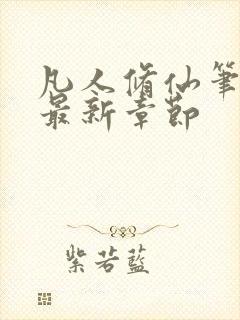 凡人脩仙筆
最新章節
紫若藍